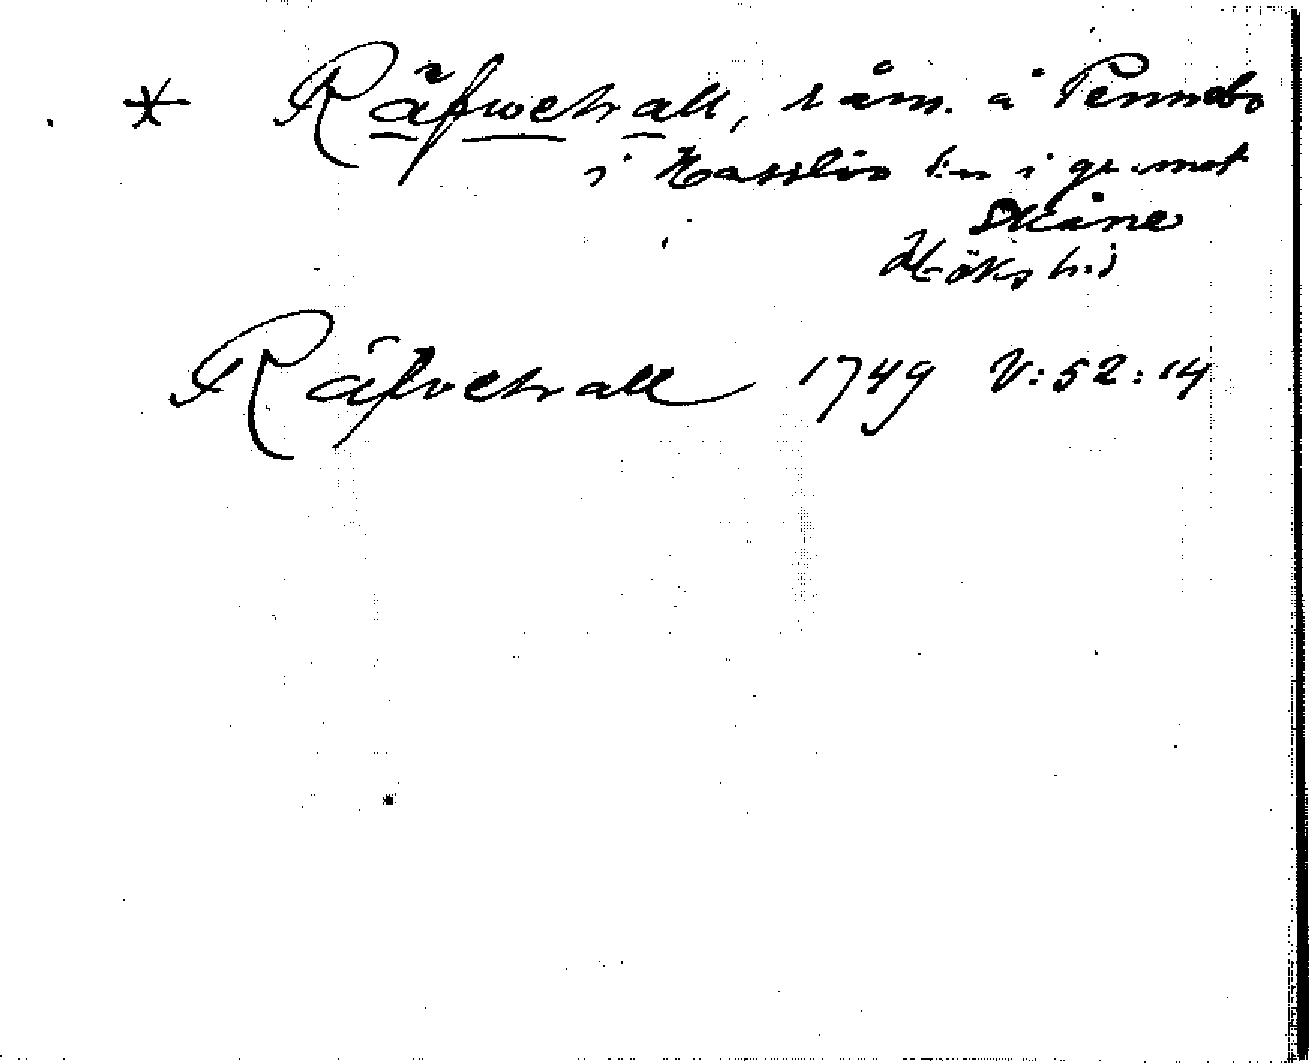 * Räfwehall, råm. å Pennebo
i Hasslöv sn i gr. mot
Skåne
Höks hd
Räfvehall 1749 V:52:14